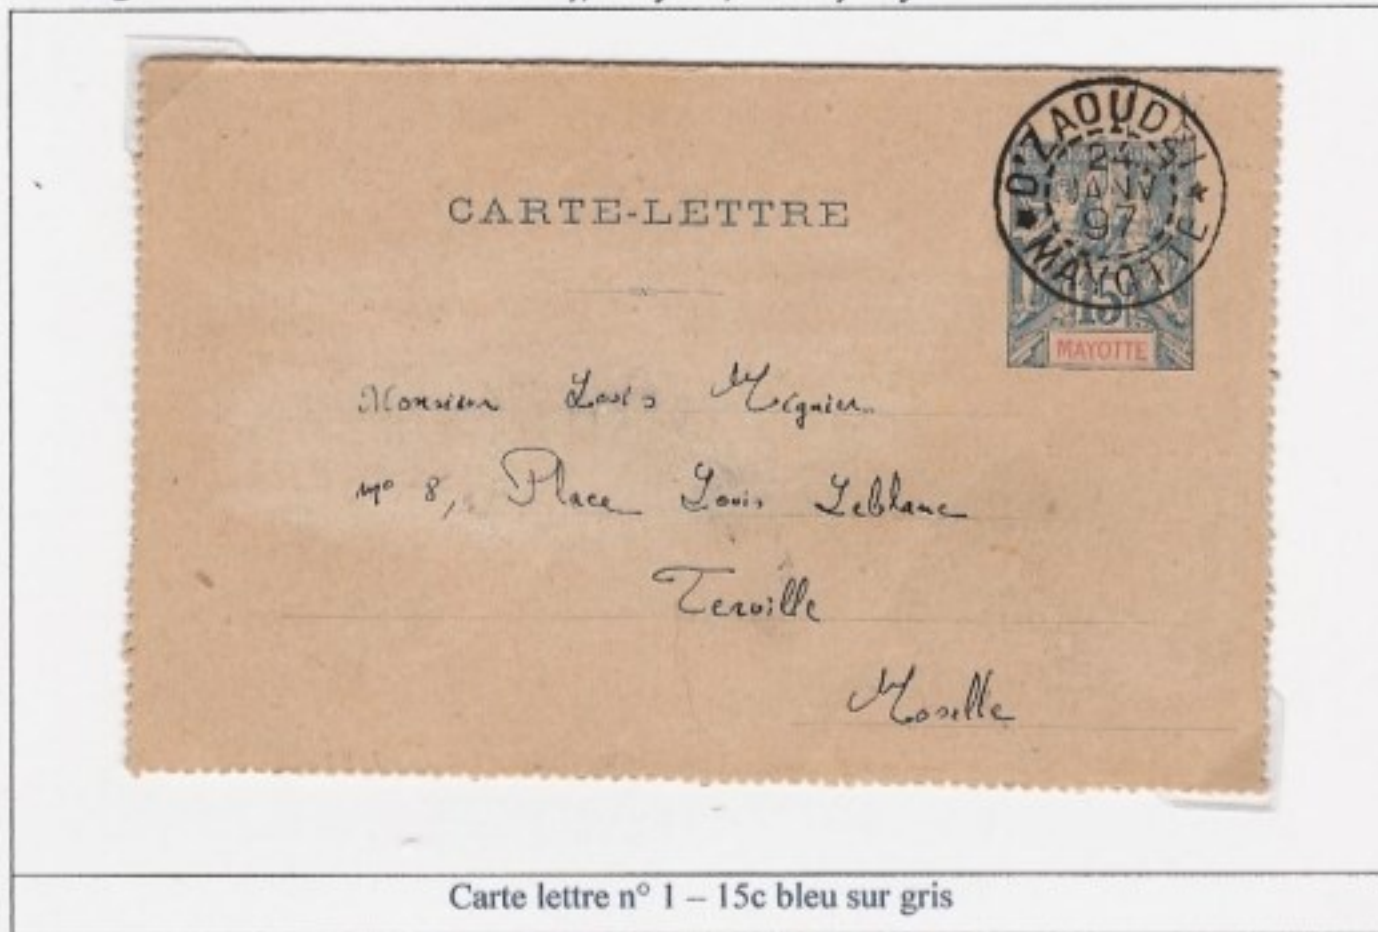 CARTE-LETTRE
D'ZAOUDZI
24
JANV
97
MAYOTTE
15
MAYOTTE
Monsieur Louis Mignier
nº 8, Place Louis Leblanc
Terville
Moselle
Carte lettre n° 1 – 15c bleu sur gris